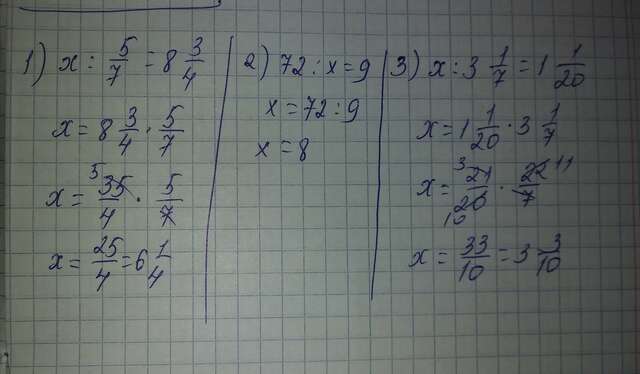 1) x : 5/7 = 8 3/4
x = 8 3/4 · 5/7
x = 35/4 · 5/7
5
x = 25/4 = 6 1/4
2) 72 : x = 9
x = 72 : 9
x = 8
3) x : 3 1/7 = 1 1/20
x = 1 1/20 · 3 1/7
3 11
x = 21/20 · 22/7
10
x = 33/10 = 3 3/10